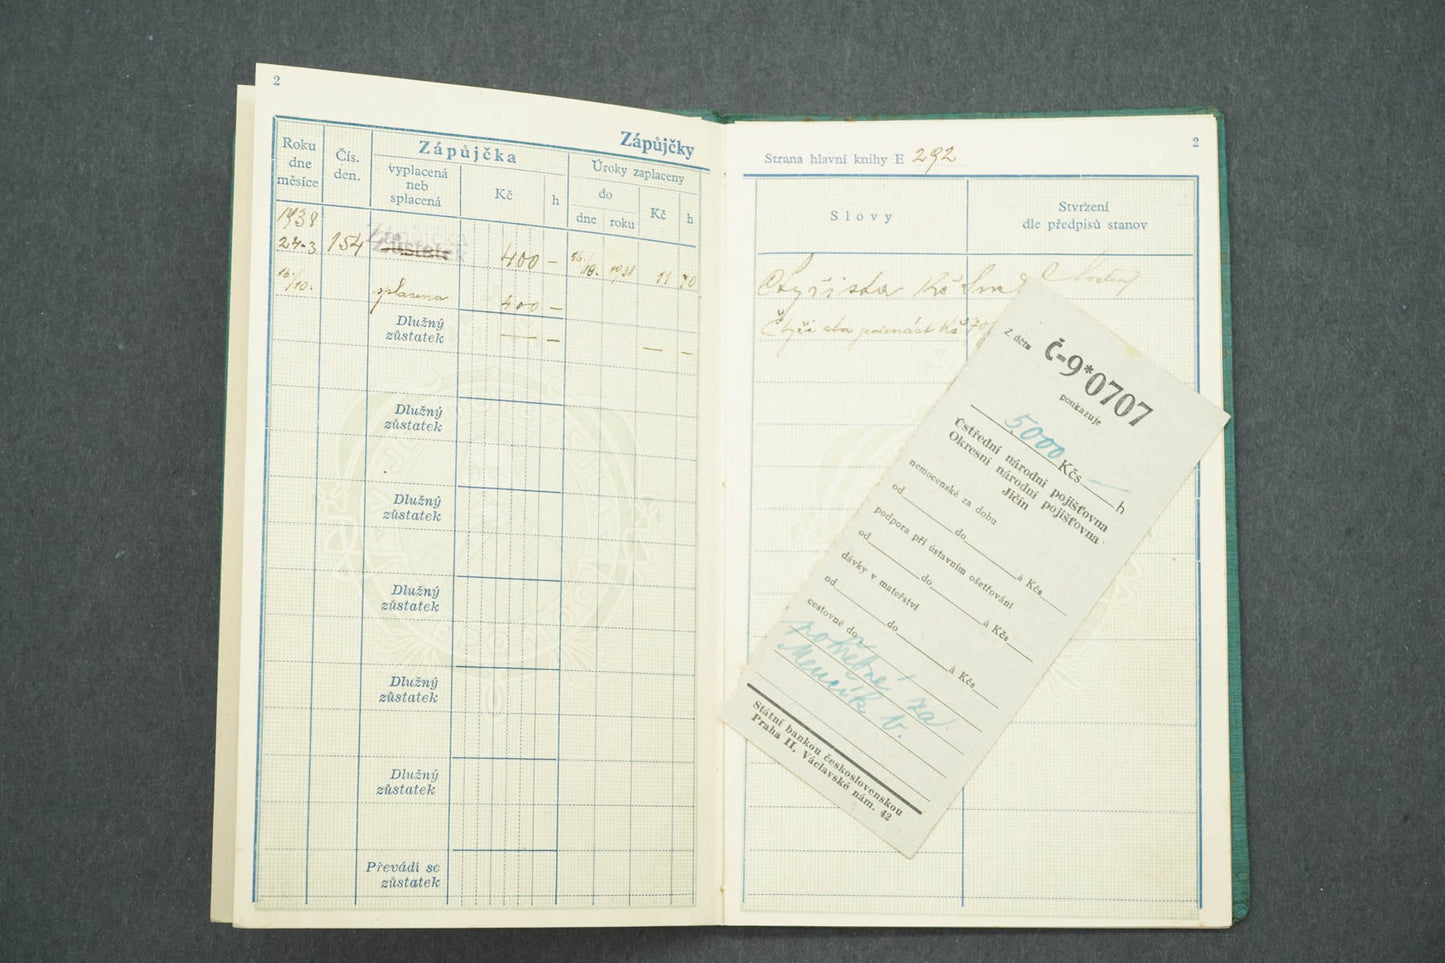 2
Zápůjčky
Roku
dne
měsíce
Čís.
den.
Zápůjčka
vyplacená
neb
splacená
Kč
h
Úroky zaplaceny
do
dne
roku
Kč
h
1938
27.3 154 400 — 16./10. 1938 11 70
16./10. splacena 400 —
Dlužný
zůstatek — — — —
Dlužný
zůstatek
Dlužný
zůstatek
Dlužný
zůstatek
Dlužný
zůstatek
Dlužný
zůstatek
Převádí se
zůstatek
2
Strana hlavní knihy E 292
Slovy
Stvrzení
dle předpisů stanov
Čtyřista Kč
Čtyři sta jedenáct Kč 70
Z účtu
Č-9*0707
poukazuje
5000 Kčs — h
Ústřední národní pojišťovna
Okresní národní pojišťovna
Jičín
nemocenské za dobu
od do à Kčs
podpora při ústavním ošetřování
od do à Kčs
dávky v mateřství
od do à Kčs
cestovné do
pohřebné za
Menčík b.
Státní bankou československou
Praha II, Václavské nám. 42